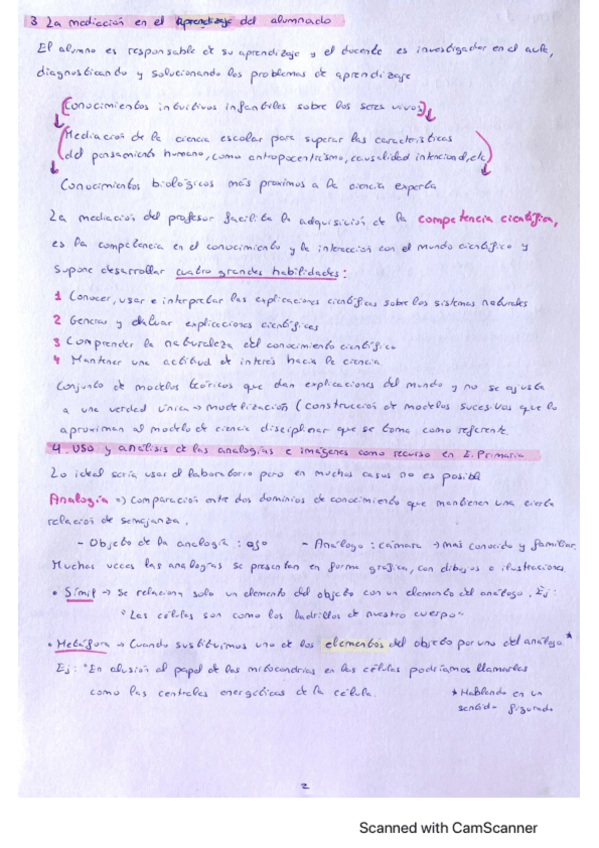 3 La mediación en el Aprendizaje del alumnado
El alumno es responsable de su aprendizaje y el docente es investigador en el aula,
diagnosticando y solucionando los problemas de aprendizaje
Conocimientos intuitivos infantiles sobre los seres vivos
Mediación de la ciencia escolar para superar las características
del pensamiento humano, como antropocentrismo, causalidad intencional, etc
Conocimientos biológicos más proximos a la ciencia experta
La mediación del profesor facilita la adquisición de la competencia científica,
es la competencia en el conocimiento y la interacción con el mundo científico y
supone desarrollar cuatro grandes habilidades:
1 Conocer, usar e interpretar las explicaciones científicas sobre los sistemas naturales
2 Generar y evaluar explicaciones científicas
3 Comprender la naturaleza del conocimiento científico
4 Mantener una actitud de interés hacia la ciencia
Conjunto de modelos teóricos que dan explicaciones del mundo y no se ajusta
a una verdad única → modelización (construcción de modelos sucesivos que lo
aproximan al modelo de ciencia disciplinar que se toma como referente
4. USO y análisis de las analogías e imágenes como recurso en E. Primaria
Lo ideal sería usar el laboratorio pero en muchos casos no es posible
Analogía => Comparación entre dos dominios de conocimiento que mantienen una cierta
relación de semejanza.
- Objeto de la analogía: ojo - Análogo: cámara → más conocido y familiar.
Muchas veces las analogías se presentan en forma gráfica, con dibujos o ilustraciones
• Símil → Se relaciona solo un elemento del objeto con un elemento del análogo. Ej:
"Las células son como los ladrillos de nuestro cuerpo"
• Metáfora → Cuando sustituimos uno de los elementos del objeto por uno del análogo.*
Ej: "En alusión al papel de las mitocondrias en las células podríamos llamarlas
como las centrales energéticas de la célula.
* Hablando en un
sentido figurado
2
Scanned with CamScanner